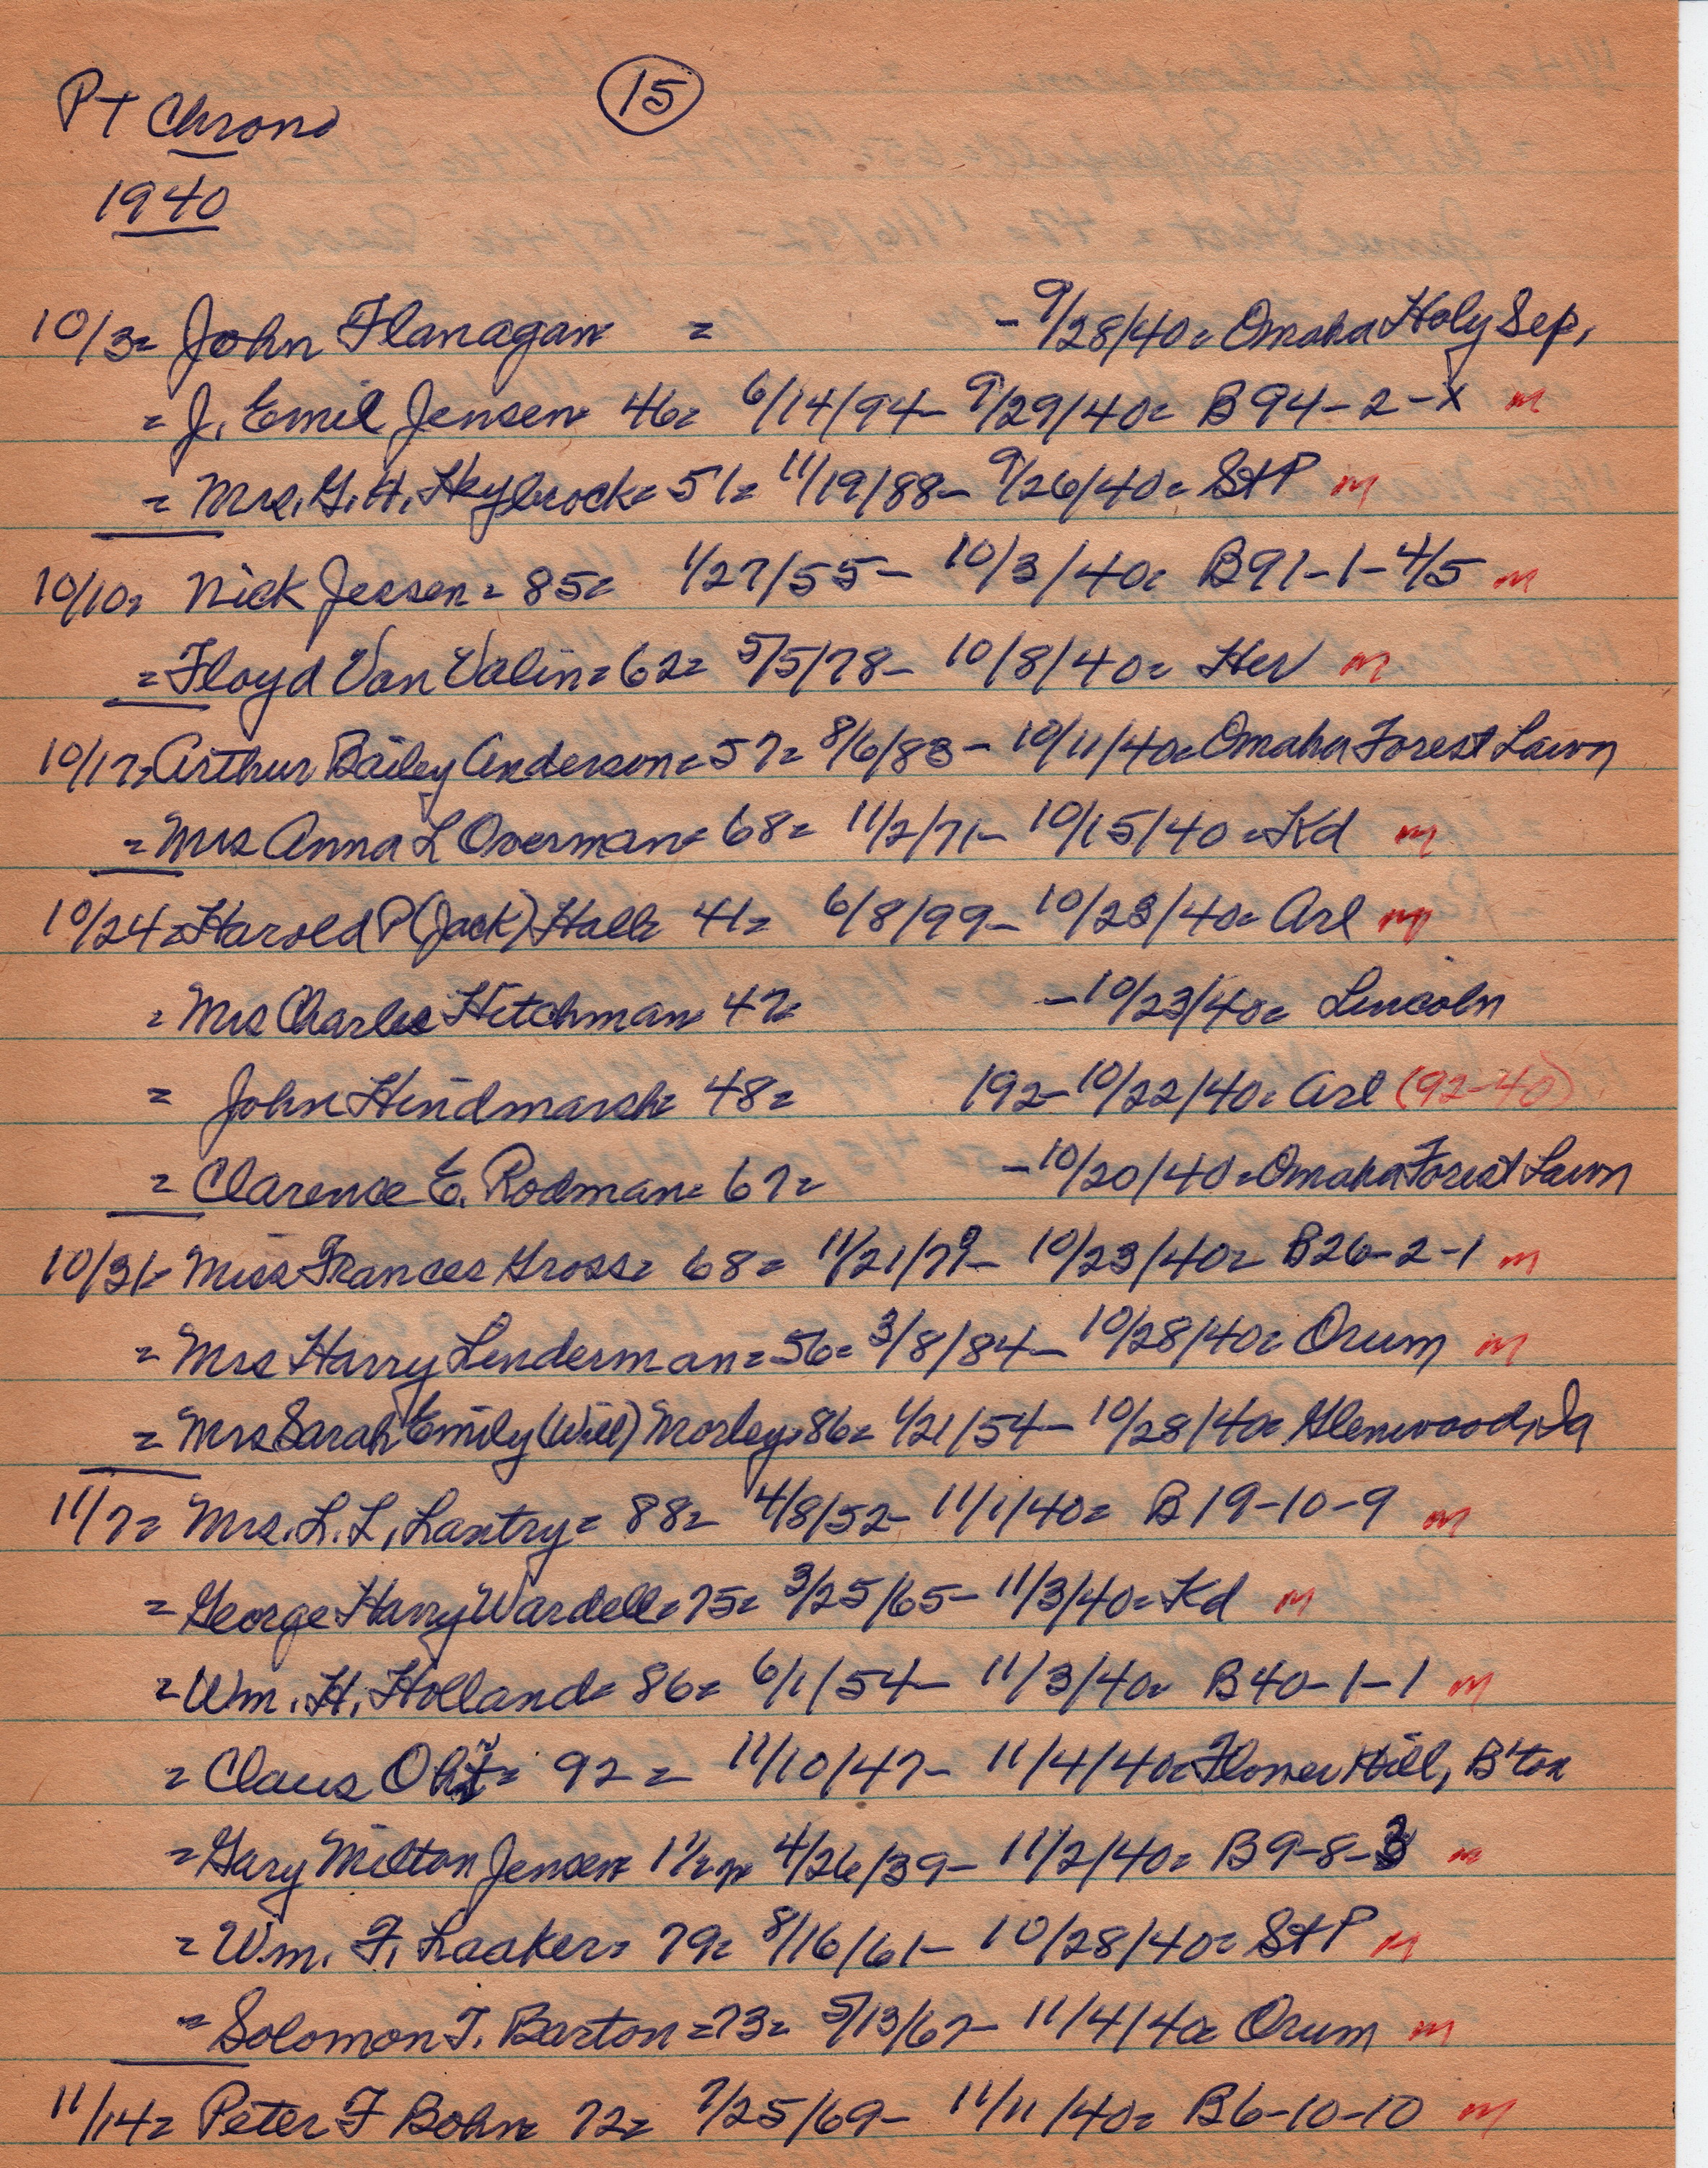 PT Chrono
15
1940
10/3= John Flanagan = - 9/28/40= Omaha Holy Sep.
= J. Emil Jensen= 46= 6/14/94- 9/29/40= B94-2-X m
= Mrs. G. H. Heybrock= 51= 11/19/88- 9/26/40= StP m
10/10= Nick Jessen= 85= 1/27/55- 10/3/40= B91-1-4/5 m
= Floyd Van Valin= 62= 5/5/78- 10/8/40= Her m
10/17= Arthur Bailey Anderson= 57= 8/6/83- 10/11/40= Omaha Forest Lawn
= Mrs Anna L Overman= 68= 11/2/71- 10/15/40= Kd m
10/24= Harold P (Jack) Hall= 41= 6/8/99- 10/23/40= Arl m
= Mrs Charles Hitchman= 47= -10/23/40= Lincoln
= John Hindmarsh= 48= 192- 10/22/40= Arl (92-40)
= Clarence E. Rodman= 67= -10/20/40= Omaha Forest Lawn
10/31= Miss Frances Gross= 68= 11/21/79- 10/23/40= B26-2-1 m
= Mrs Harry Linderman= 56= 3/8/84- 10/28/40= Orum m
= Mrs Sarah Emily (Will) Morley= 86= 1/21/54- 10/28/40= Glenwood, Ia
11/7= Mrs. L. L. Lantry= 88= 4/8/52- 11/1/40= B19-10-9 m
= George Harry Wardell= 75= 3/25/65- 11/3/40= Kd m
= Wm. H. Holland= 86= 6/1/54- 11/3/40= B40-1-1 m
= Claus 92= 11/10/47- 11/4/40= Flower Hill, B'ton
= Gary Milton Jensen 1½ yr 4/26/39- 11/2/40= B9-8-3 m
= Wm. F. Laaker= 79= 8/16/61- 10/28/40= StP m
= Solomon T. Barton= 73= 5/13/67- 11/4/40= Orum m
11/14= Peter F Bohn= 72= 7/25/69- 11/11/40= B6-10-10 m